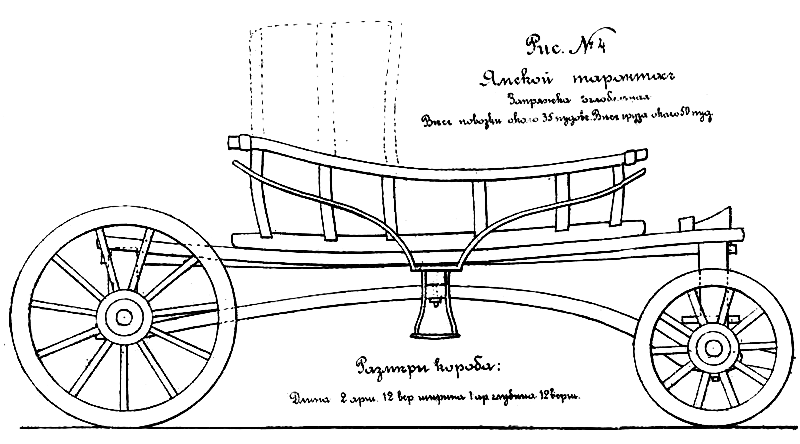 Рис. № 4
Ямской тарантасъ
Запряжка оглобельная
Весъ повозки около 35 пудовъ. Весъ груза около 50 пуд.
Размѣры короба:
Длина 2 арш. 12 вер ширина 1 ар глубина 12 верш.